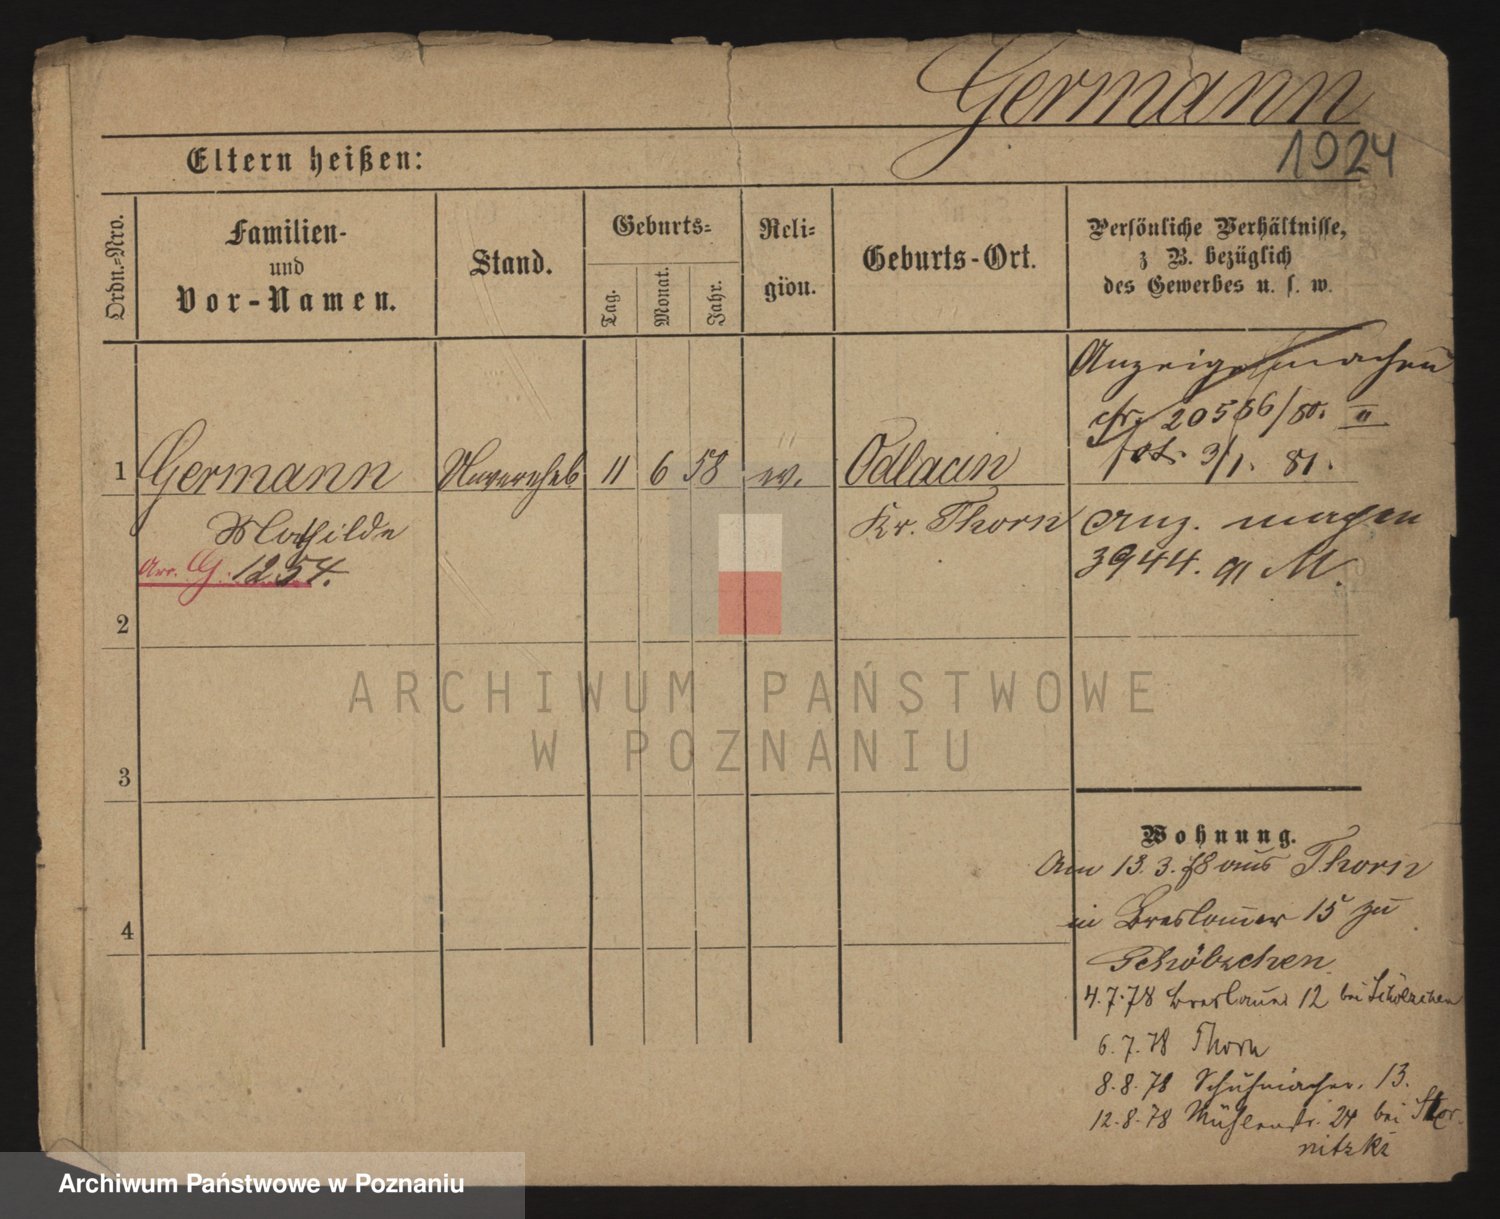 Germann
1924
Eltern heißen:
Ordn.=Nro.
Familien-
und
Vor-Namen.
Stand.
Geburts=
Tag.
Monat.
Jahr.
Reli=
gion.
Geburts-Ort.
Persönliche Verhältnisse,
z B. bezüglich
des Gewerbes u. s. w.
Anzeige machen
20556/80. II
3/1. 81.
1 Germann 11 6 58 ev. Odlacin
Mathilde Kr. Thorn Anz. machen
Arr. G. 1254. 3944. 91 M.
2
3
4
Wohnung.
Am 13.3.78 aus Thorn
in Breslauer 15 zu
4.7.78 Breslauer 12 bei
6.7.78 Thorn
8.8.78 Schuhmacher. 13.
12.8.78 Mühlenstr. 24 bei
nitzki
ARCHIWUM PAŃSTWOWE
W POZNANIU
Archiwum Państwowe w Poznaniu